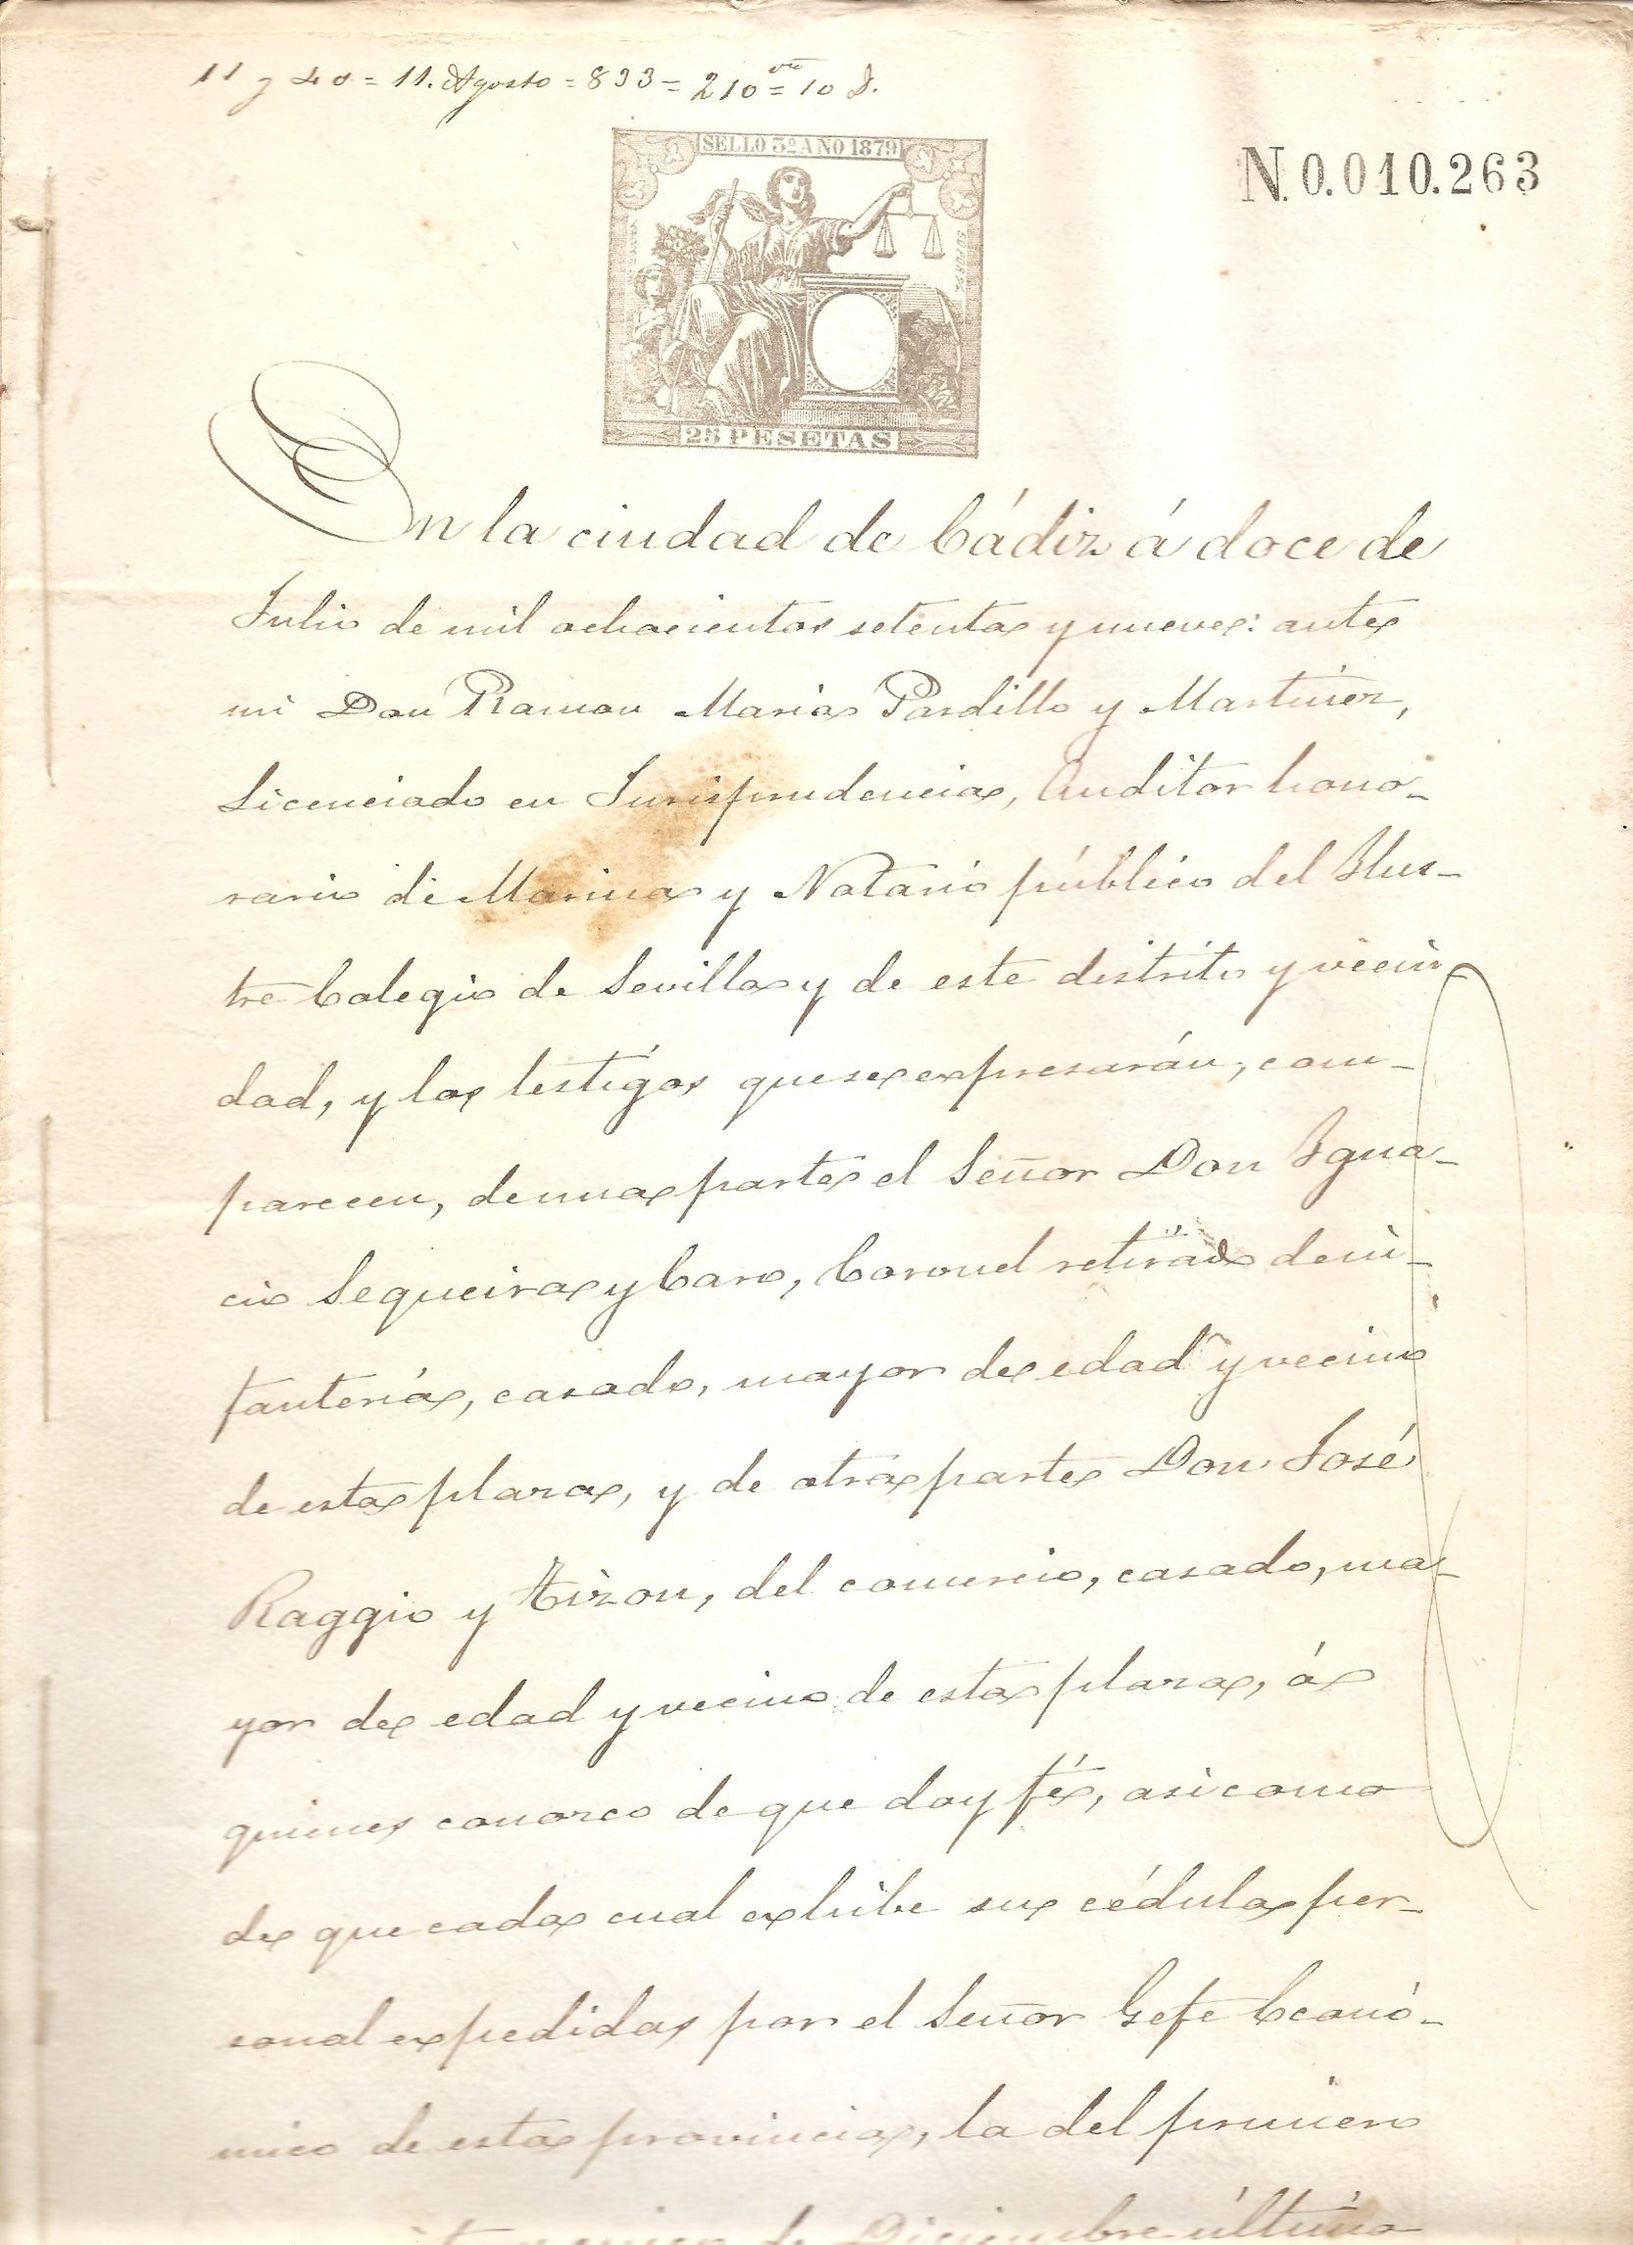 11 y 40 = 11. Agosto = 833 = 210 vto = 10 d.
SELLO 3º AÑO 1879
N.0.010.263
25 PESETAS
En la ciudad de Cádiz á doce de
Julio de mil ochocientos setenta y nueve: ante
mi Don Ramon Maria Pardillo y Martinez,
Licenciado en Jurisprudencia, Auditor hono-
rario de Marina y Notario público del Ilus-
tre Colegio de Sevilla y de este distrito y vecin-
dad, y los testigos que se expresarán, com-
parecen, de una parte el Señor Don Igna-
cio Sequeira y Caro, Coronel retirado de in-
fanteria, casado, mayor de edad y vecino
de esta plaza, y de otra parte Don José
Raggio y Tizon, del comercio, casado, ma-
yor de edad y vecino de esta plaza, á
quienes conozco de que doy fé, asi como
de que cada cual exhibe su cédula per-
sonal expedidas por el Señor Gefe Econó-
mico de esta provincia, la del primero
de Diciembre último